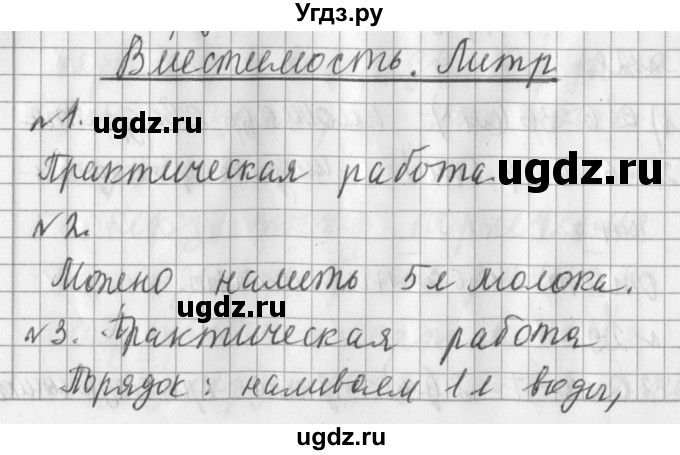 Угдз.ру
Вместимость. Литр
№1.
ugdz.ru
Практическая работа
ugdz.ru
№2.
Можно налить 5 л молока.
ugdz.ru
№3. Практическая работа
Порядок: наливаем 1 л воды,
ugdz.ru